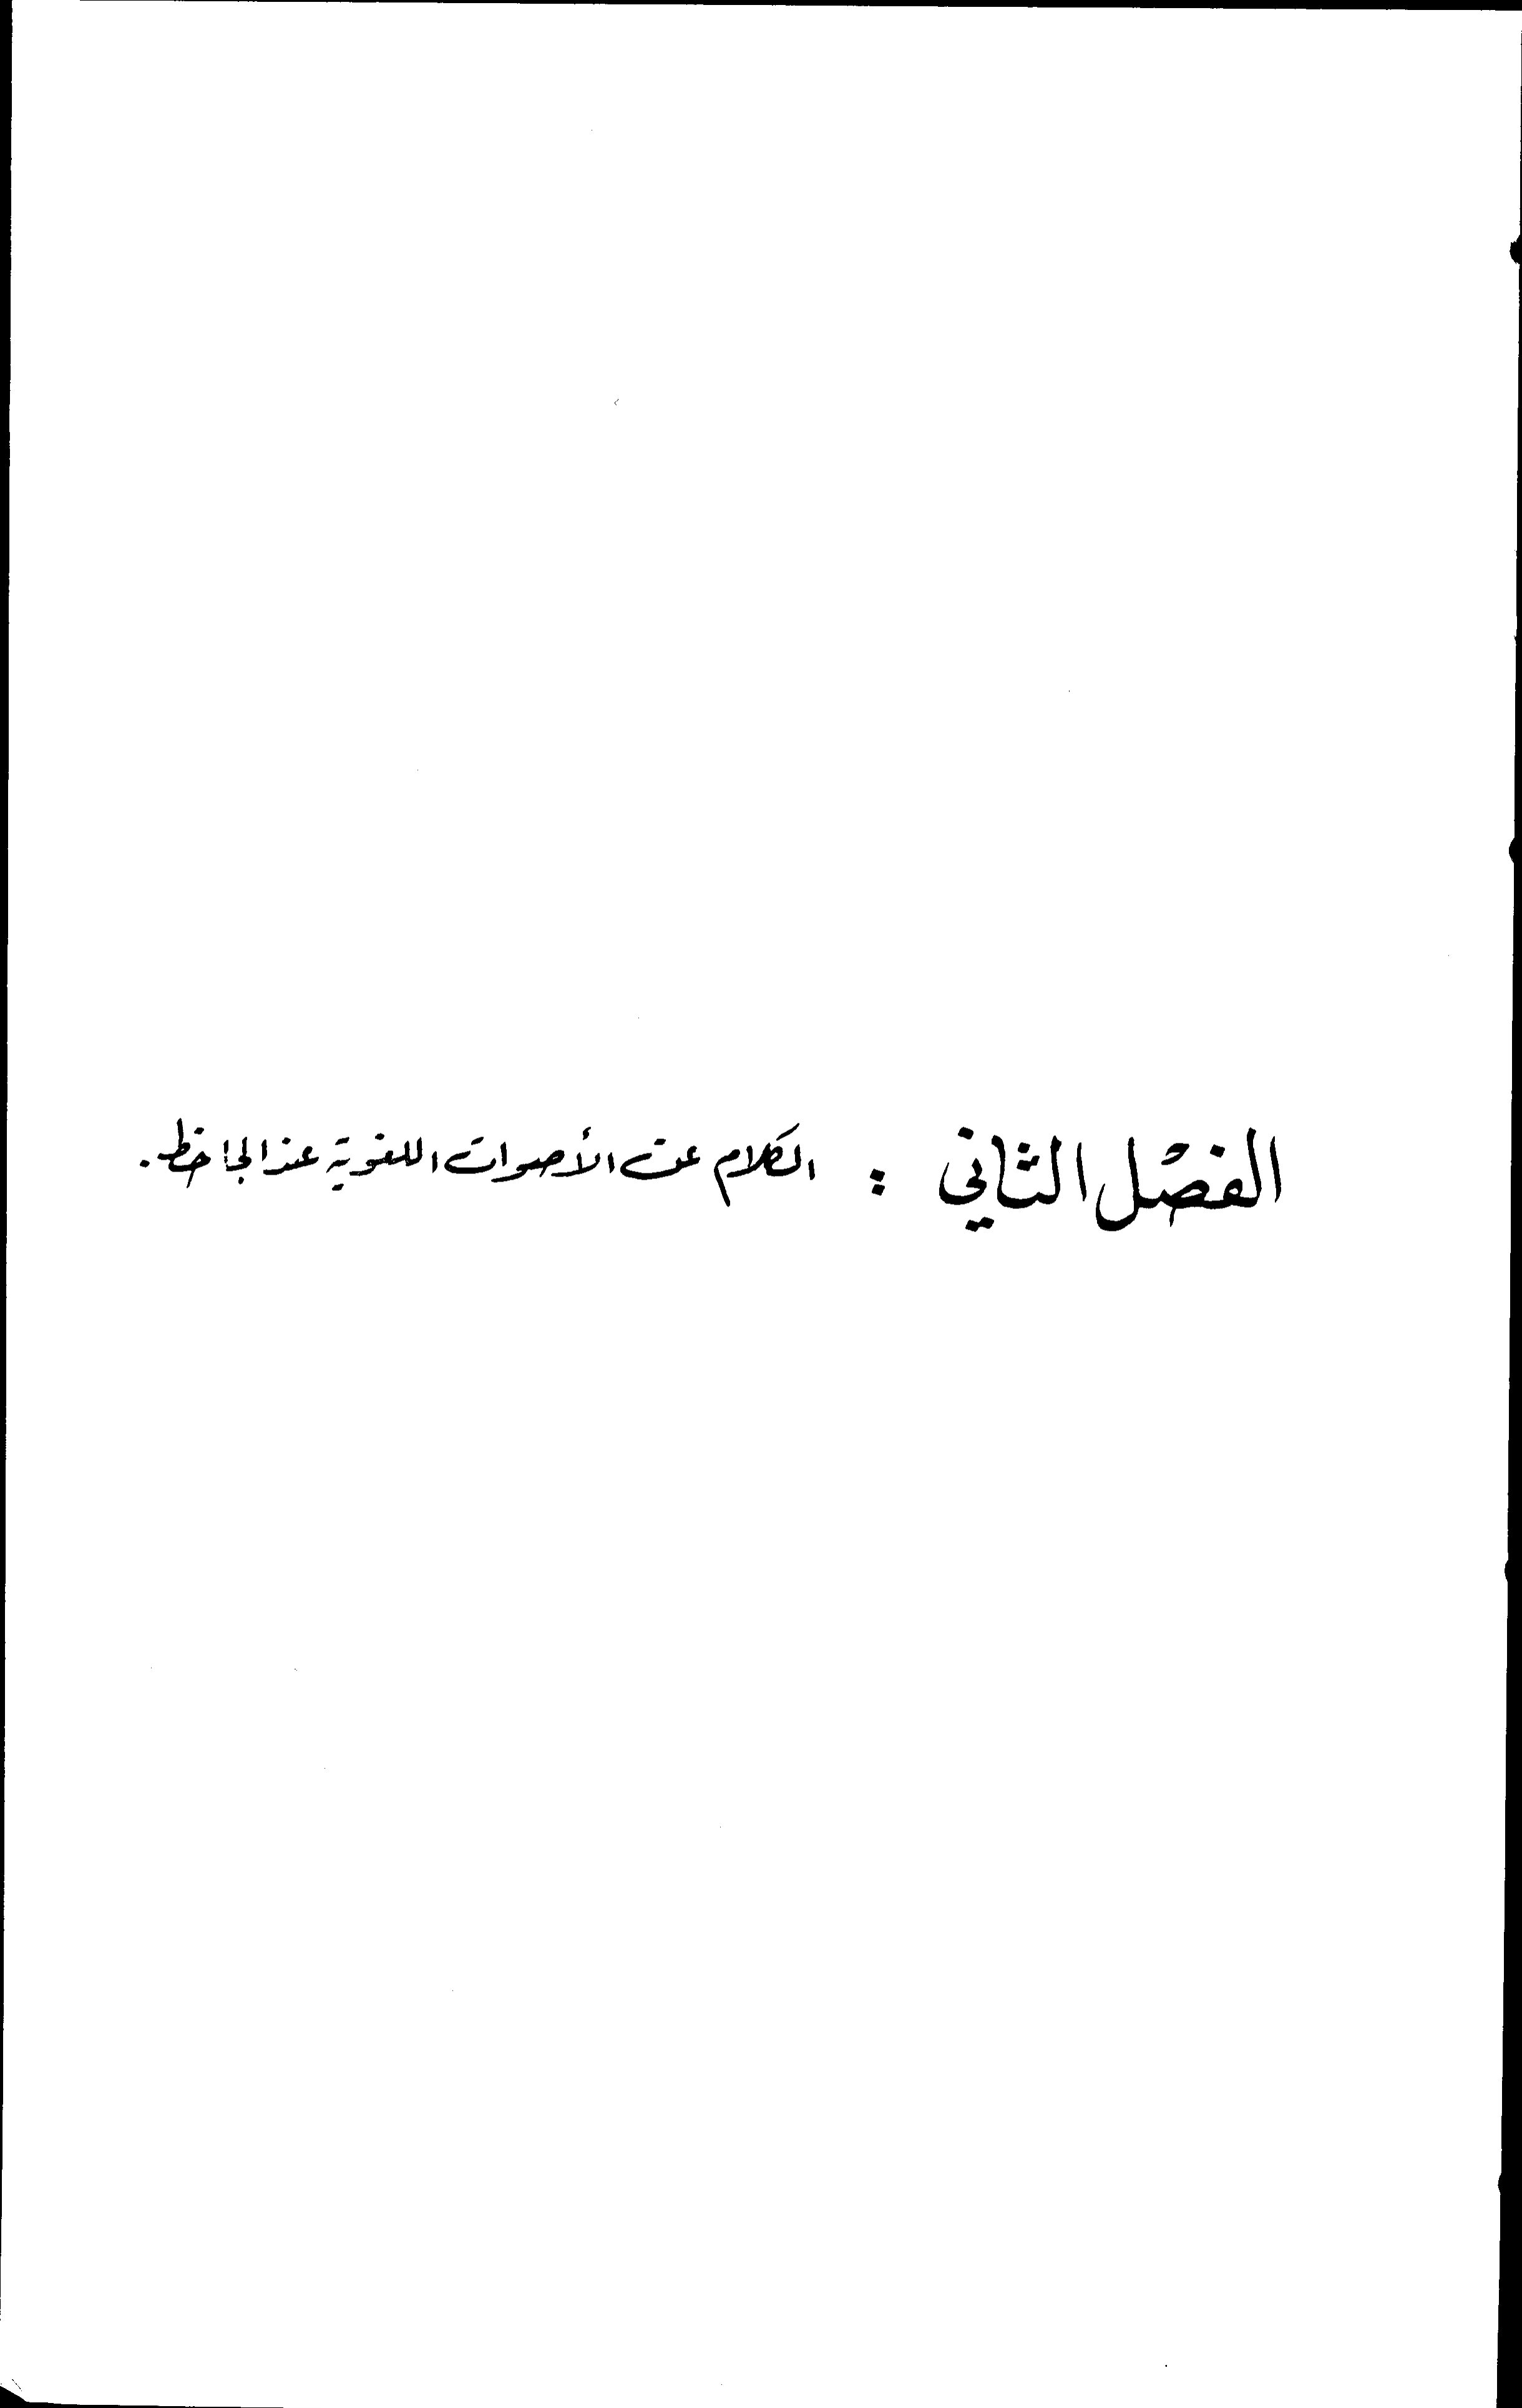 الفصل الثاني : الكلام عن الأصوات اللغوية عند الجاحظ.